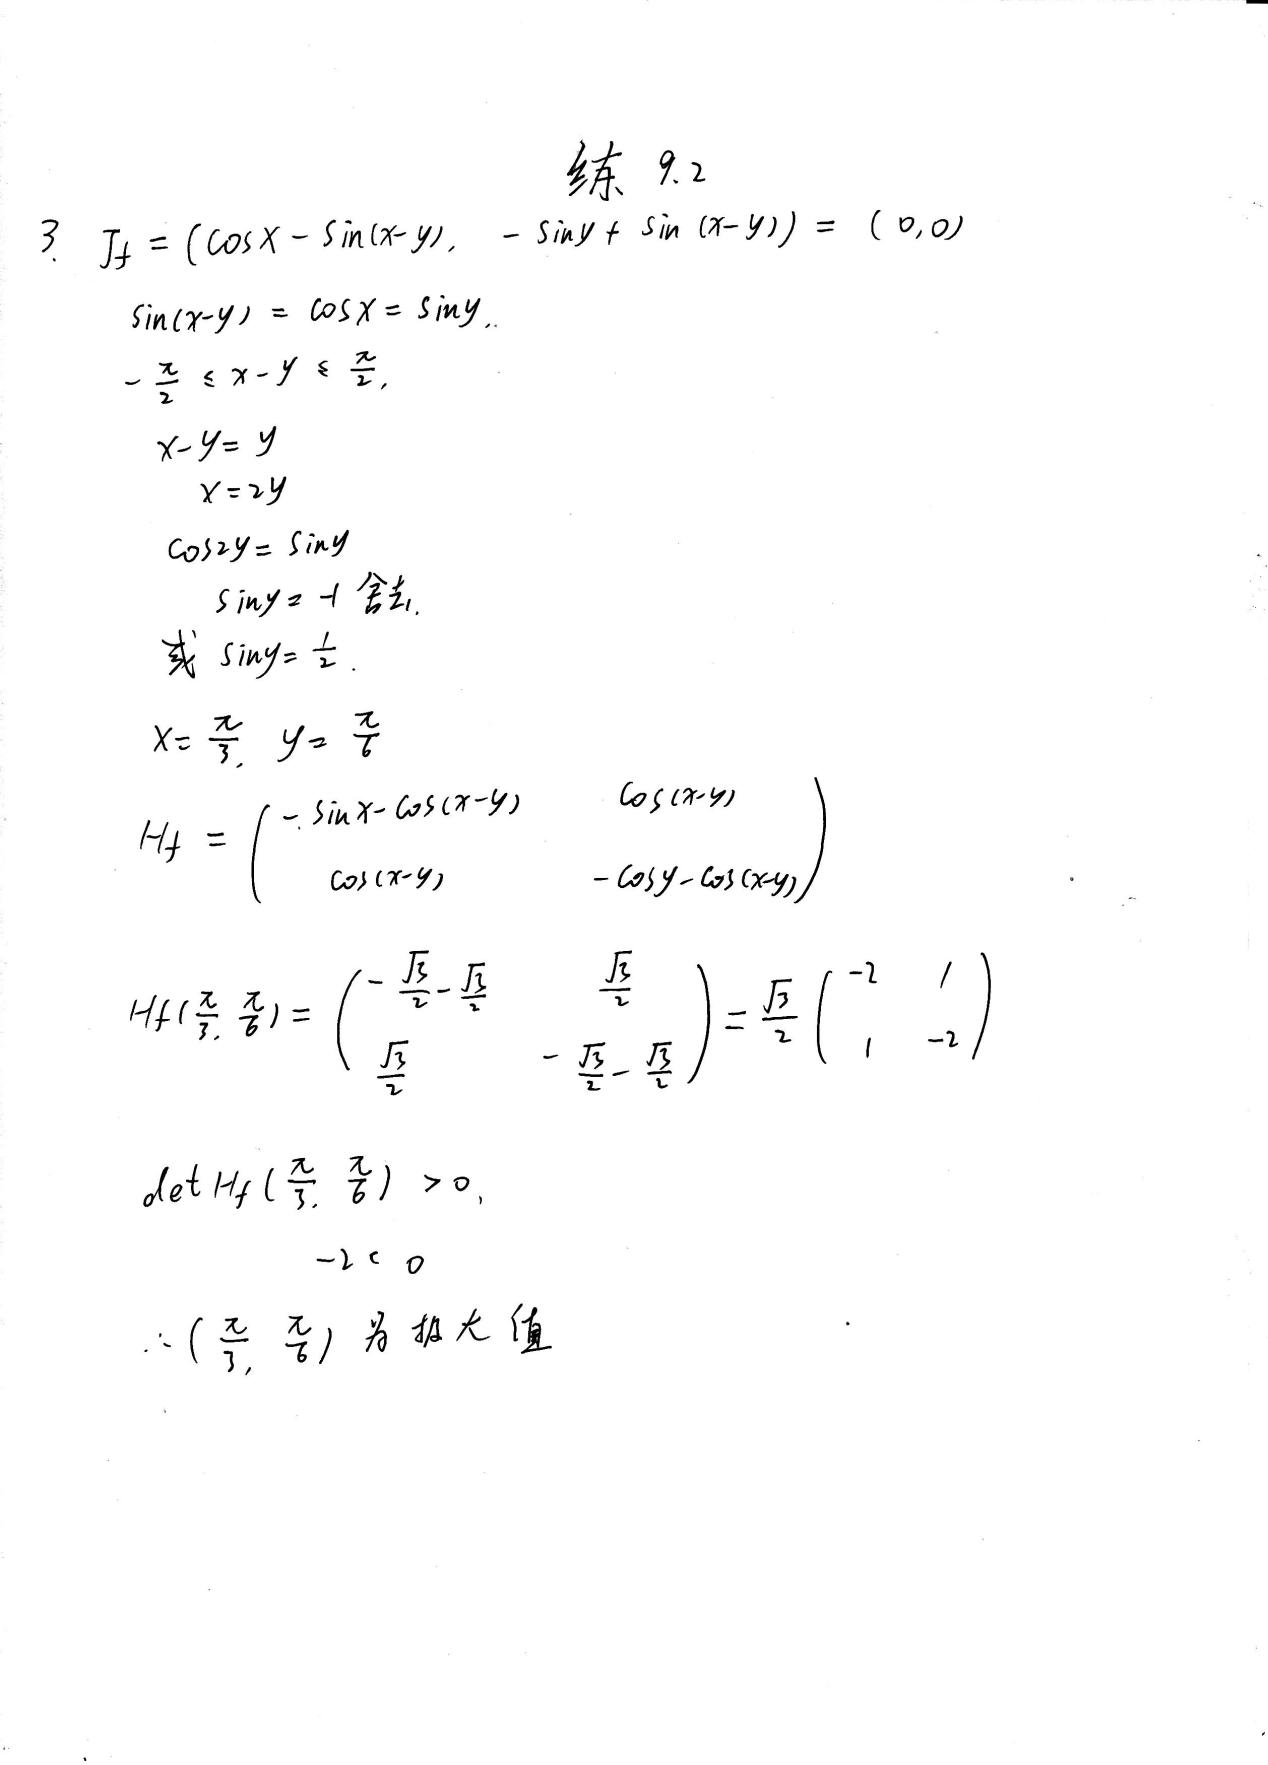 练 9.2
3. Jf = (cosx - sin(x-y), - siny + sin (x-y)) = (0,0)
sin(x-y) = cosx = siny.
-π/2 ≤ x-y ≤ π/2,
x-y = y
x=2y
cos2y = siny
siny = -1 舍去.
或 siny = 1/2.
x = π/3, y = π/6
Hf = ( -sinx-cos(x-y) cos(x-y)
cos(x-y) -cosy-cos(x-y) )
Hf(π/3, π/6) = ( -√3/2 - √3/2 √3/2 ) = √3/2 ( -2 1 )
( √3/2 -√3/2 - √3/2 ) ( 1 -2 )
det Hf (π/3, π/6) >0,
-2 < 0
∴ (π/3, π/6) 为极大值